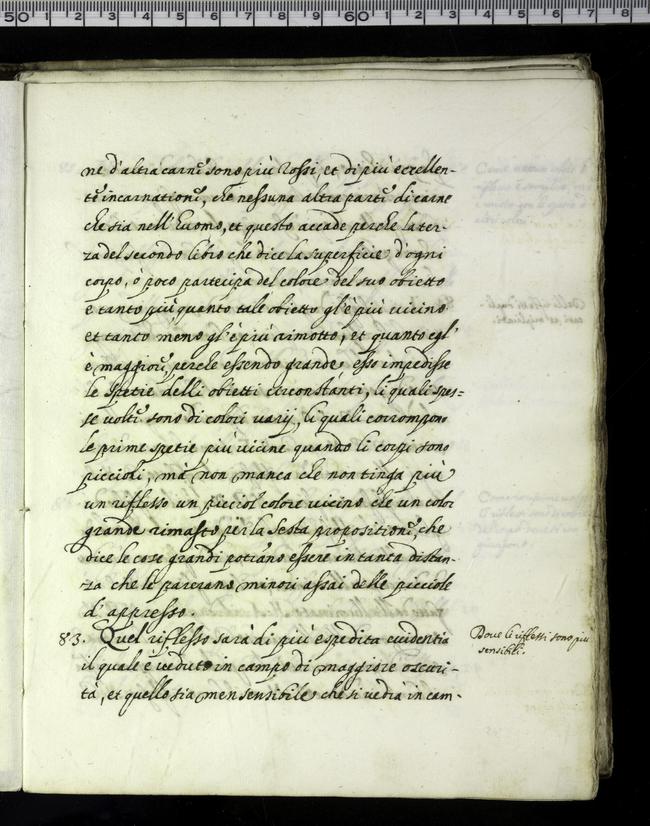 50 1 2 3 4 5 6 7 8 9 60 1 2 3 4 5 6 7 8
ne d'altra carne sono più rossi, et di più eccellen-
te incarnatione, che nessuna altra parte di carne
che sia nell'huomo, et questo accade perche la ter-
za del secondo libro che dice la superficie d'ogni
corpo, ò poco partecipa del colore del suo obietto
e tanto più quanto tale obietto gl'è più vicino
et tanto meno gl'è più rimotto, et quanto egl'
è maggiore, perche essendo grande, esso impedisse
le spetie delli obietti circonstanti, li quali spes=
se volte sono di colori varij, li quali corrompono
le prime spetie più vicine quando li corpi sono
piccioli, mà non manca che non tinga più
un riflesso un picciol colore vicino che un color
grande rimosto per la sesta propositione, che
dice le cose grandi potrano essere in tanta distan-
za che le parerano minori assai delle picciole
d'appresso.
83. Quel riflesso sarà di più espedita evidentia
il quale è veduto in campo di maggiore oscuri-
tà, et quello sia men sensibile, che si vedrà in cam-
Dove li riflessi sono più
sensibili.